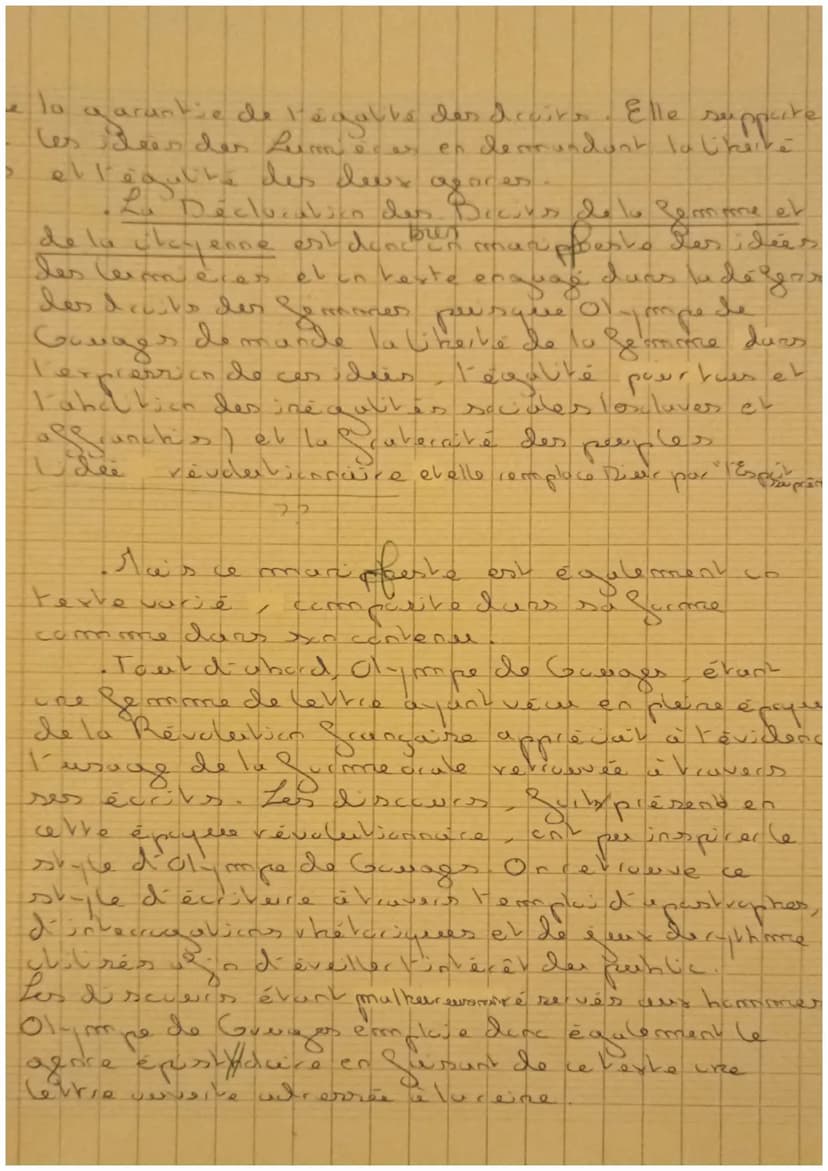 la garantie de l'égalité des droits. Elle supporte
les idées des Lumières en demandant la liberté
et l'égalité des deux genres.
. La Déclaration des Droits de la femme et
de la citoyenne est donc bien un manifeste des idées
des lumières et un texte engagé dans la défense
des droits des femmes puisque Olympe de
Gouges demande la liberté de la femme dans
l'expression de ces idées, l'égalité pour tous et
l'abolition des inégalités sociales (esclaves et
affranchis) et la fraternité des peuples
Idée révolutionnaire et elle remplace Dieu par "l'Esprit suprême
??
. Mais ce manifeste est également un
texte varié, composite dans sa forme
comme dans son contenu.
. Tout d'abord, Olympe de Gouges, étant
une femme de lettre ayant vécu en pleine époque
de la Révolution française appréciait à l'évidence
l'usage de la forme orale retrouvée à travers
ses écrits. Les discours, présent en
cette époque révolutionnaire, ont pu inspirer le
style d'Olympe de Gouges. On retrouve ce
style d'écriture à travers l'emploi d'apostrophes,
d'interrogations rhétoriques et de jeux de rythme
utilisés afin d'éveiller l'intérêt du public.
Les discours étant malheureusement réservés aux hommes
Olympe de Gouges emploie donc également le
genre épistolaire en faisant de ce texte une
lettre ouverte adressée à la reine.